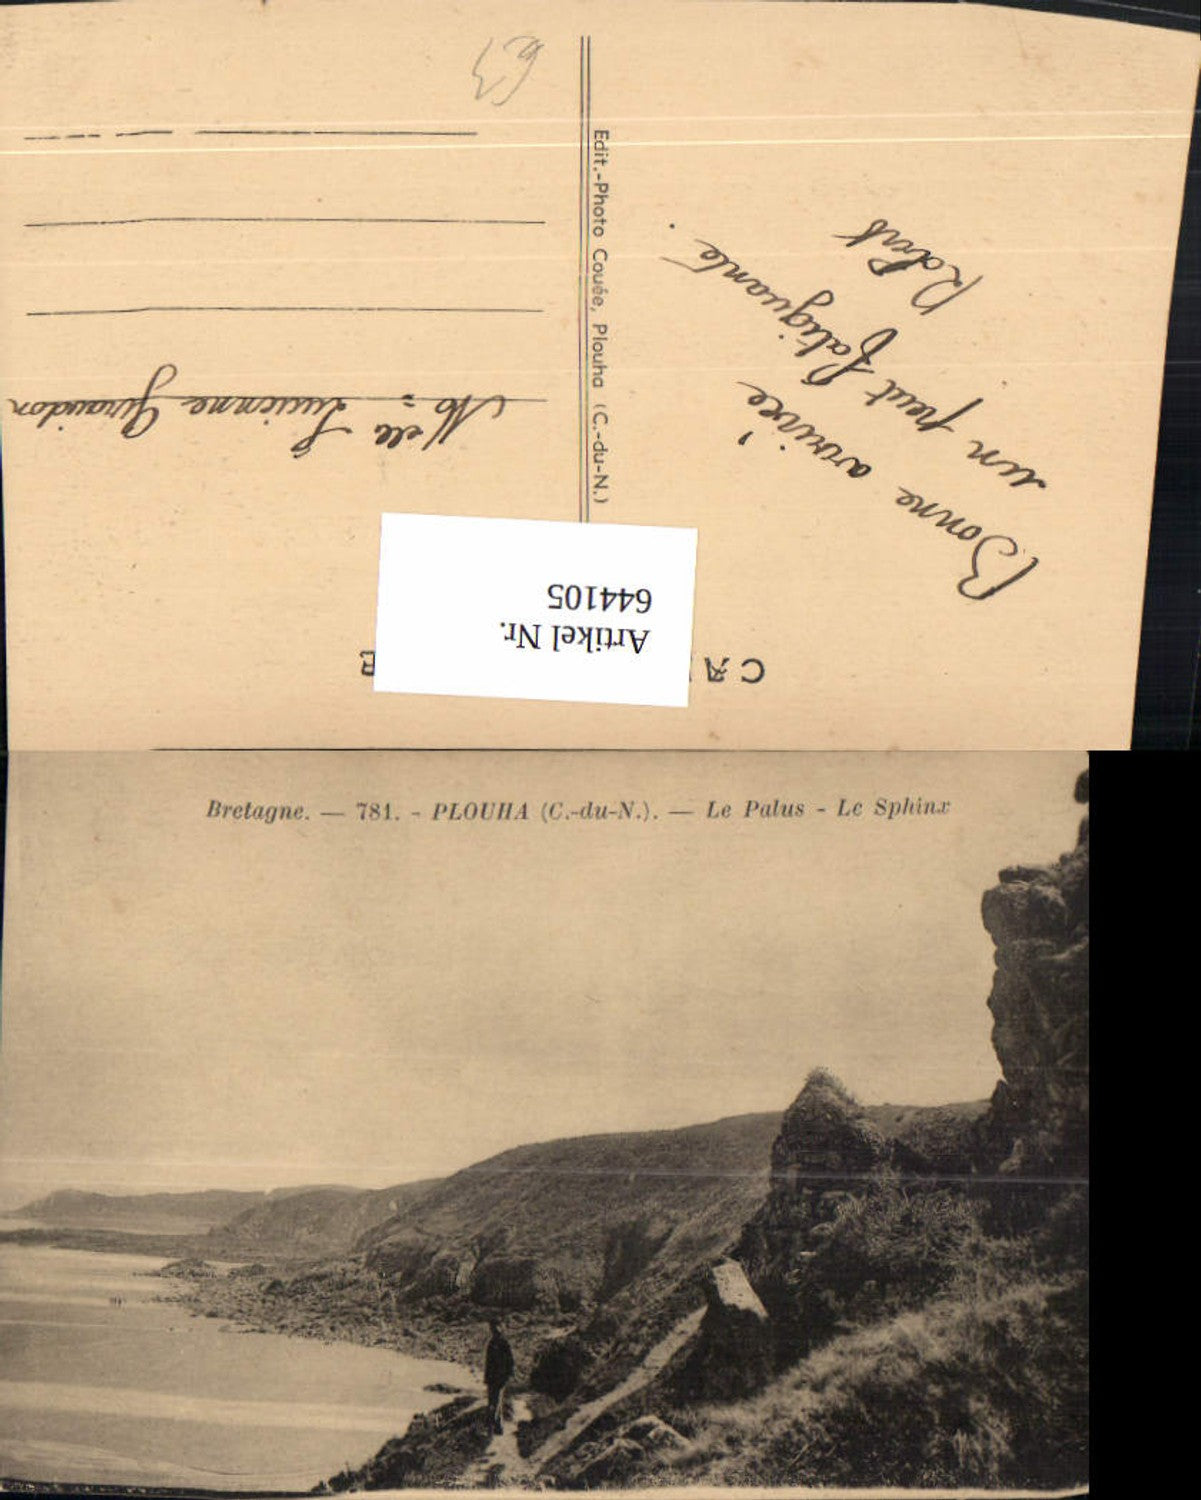 CA
E
Artikel Nr.
644105
Bonne arrivée
un peut fatiguante.
Robert
Edit.-Photo Couée, Plouha (C.-du-N.)
Melle Lucienne Giraudon
63
Bretagne. — 781. - PLOUHA (C.-du-N.). — Le Palus - Le Sphinx